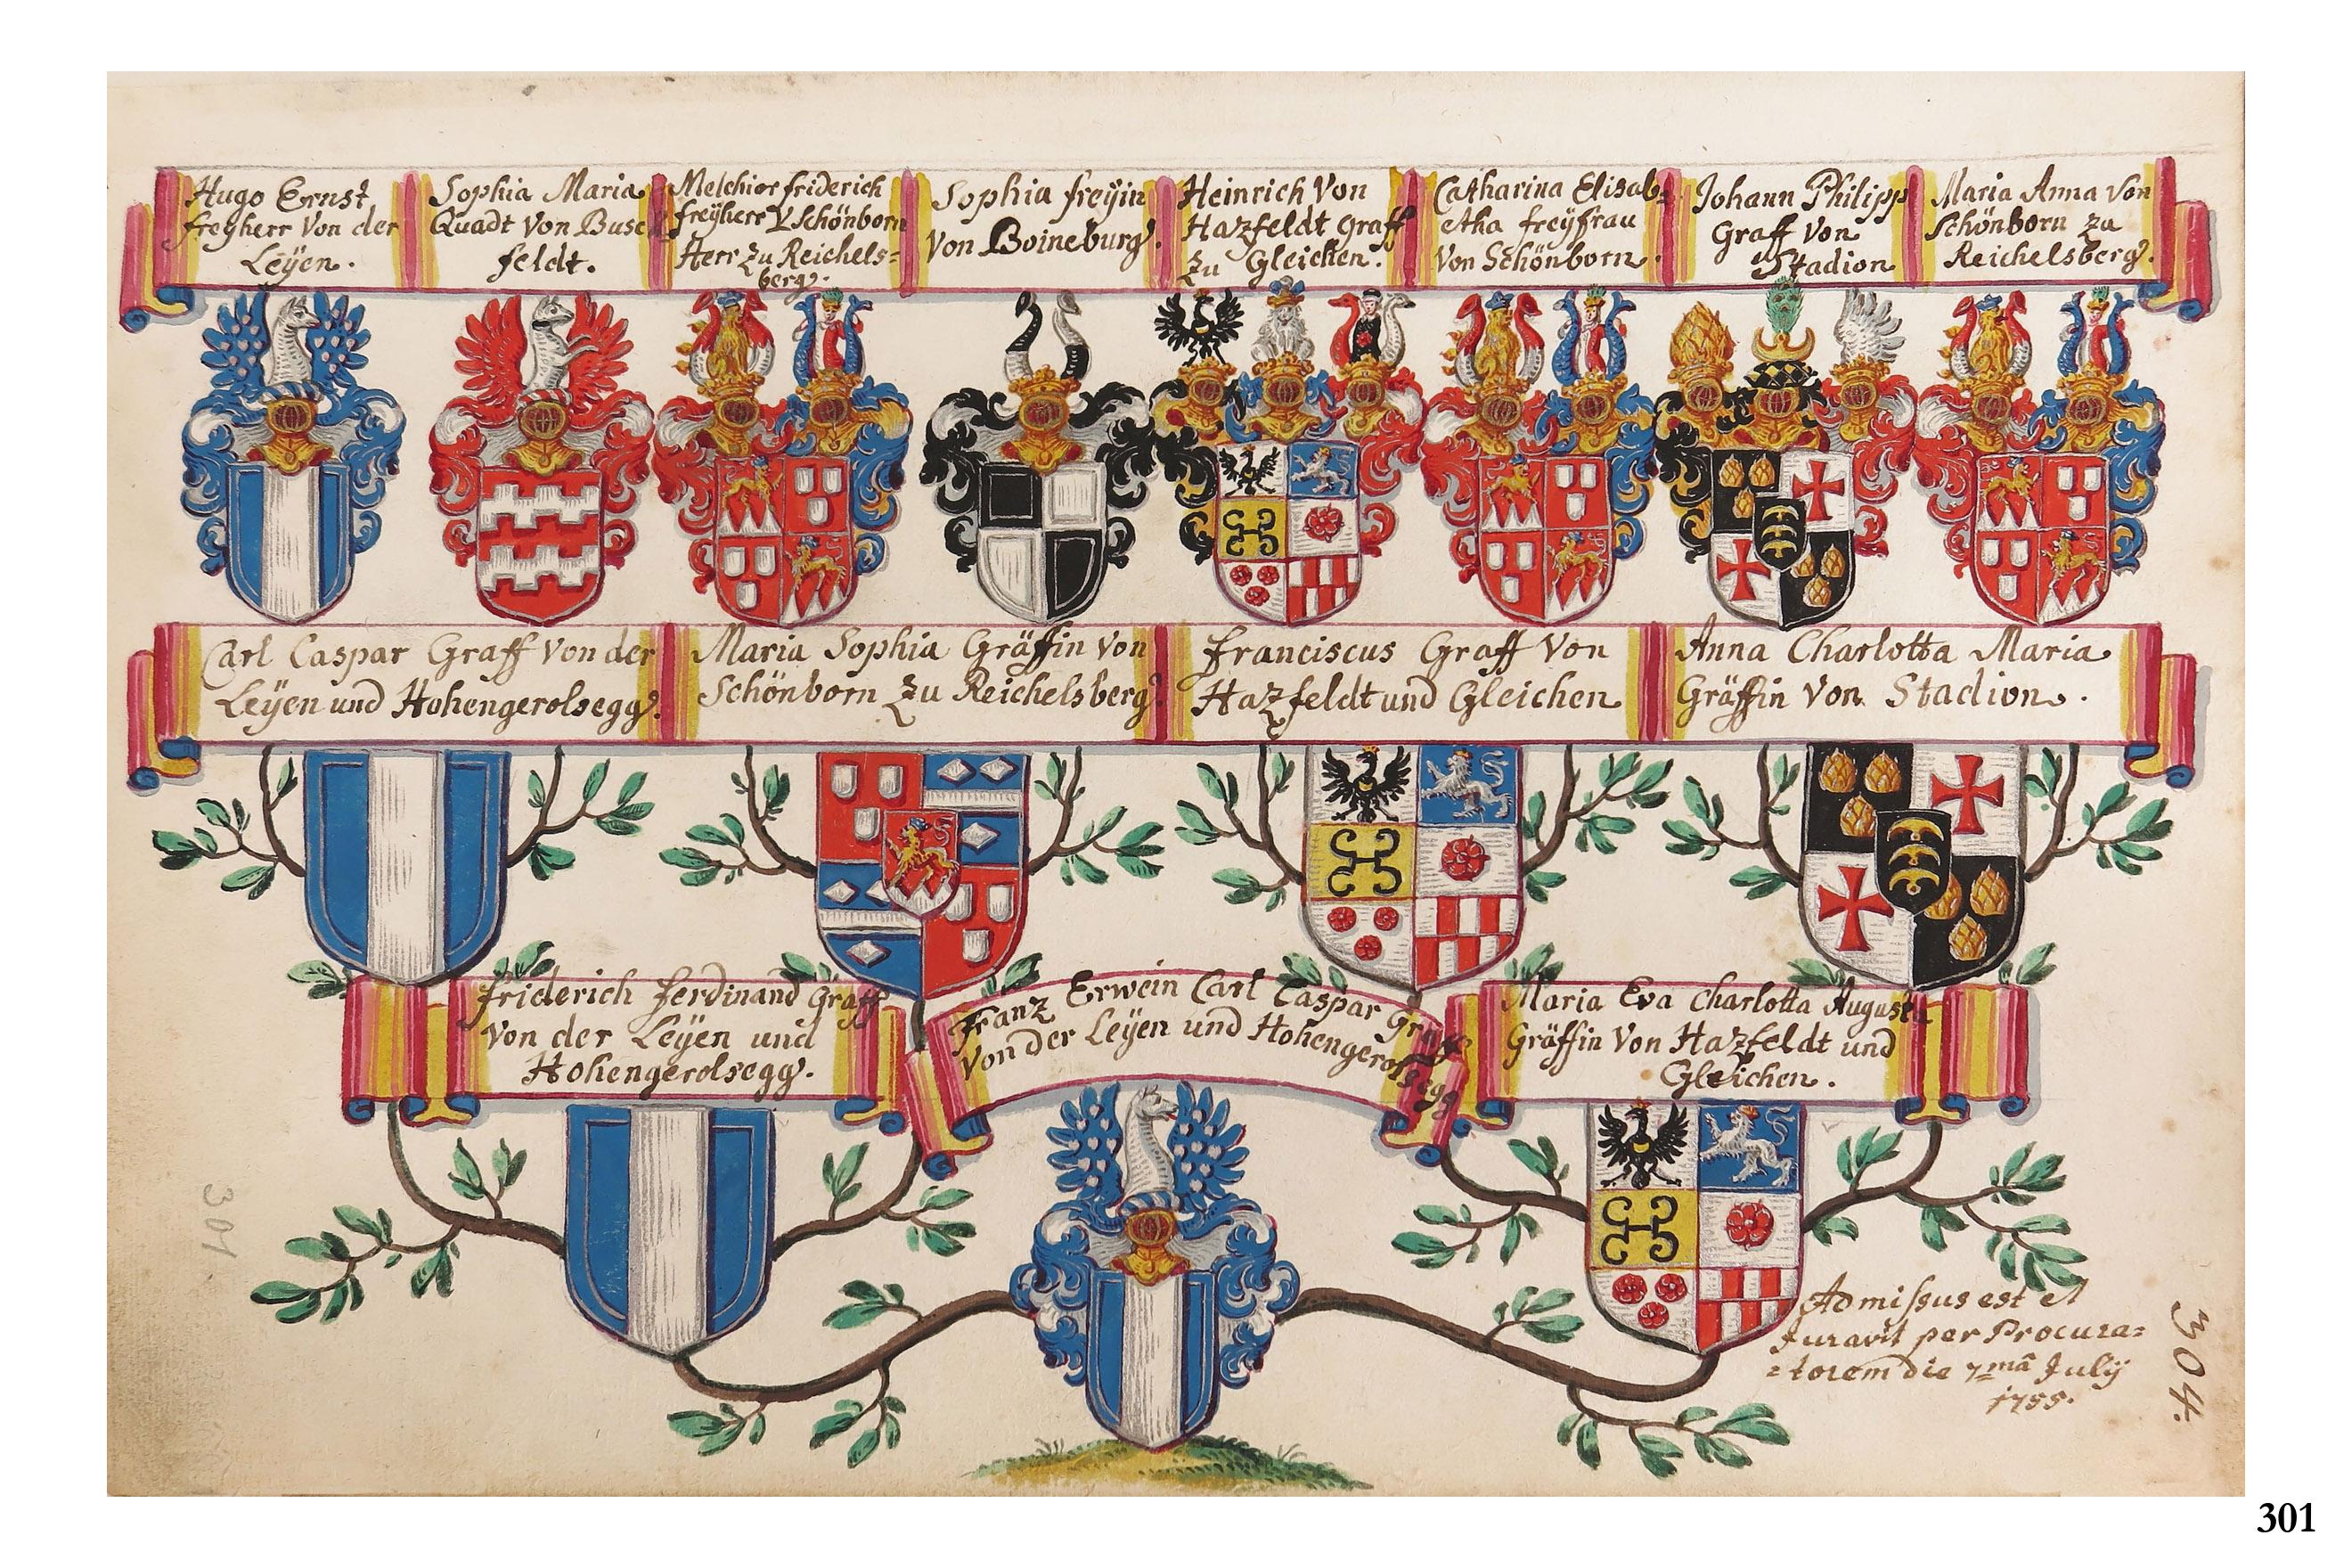 Hugo Ernst
freyherr Von der
Leÿen.
Sophia Maria
Quadt Von Busch
feldt.
Melchior friderich
freÿherr V Schönborn
Herr zu Reichels=
berg.
Sophia freÿin
Von Boineburg.
Heinrich Von
Hazfeldt Graff
zu Gleichen.
Catharina Elisab=
etha freÿfrau
Von Schönborn.
Johann Philipp
Graff Von
Stadion
Maria Anna Von
Schönborn zu
Reichelsberg.
Carl Caspar Graff Von der
Leÿen und Hohengerolsegg.
Maria Sophia Gräffin Von
Schönborn zu Reichelsberg
Franciscus Graff Von
Hazfeldt und Gleichen
Anna Charlotta Maria
Gräffin Von Stadion.
friderich ferdinand Graff
Von der Leÿen und
Hohengerolsegg.
Franz Erwein Carl Caspar Graff
Von der Leÿen und Hohengerolsegg
Maria Eva Charlotta Augusta
Gräffin Von Hazfeldt und
Gleichen.
Admissus est et
Juravit per Procura=
=torem die 7mâ Julÿ
1755.
304.
301
301